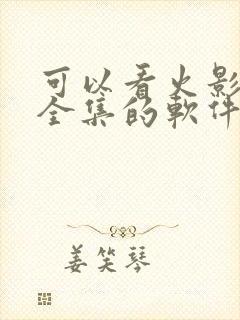 可以看火影
全集的軟件
姜笑琴